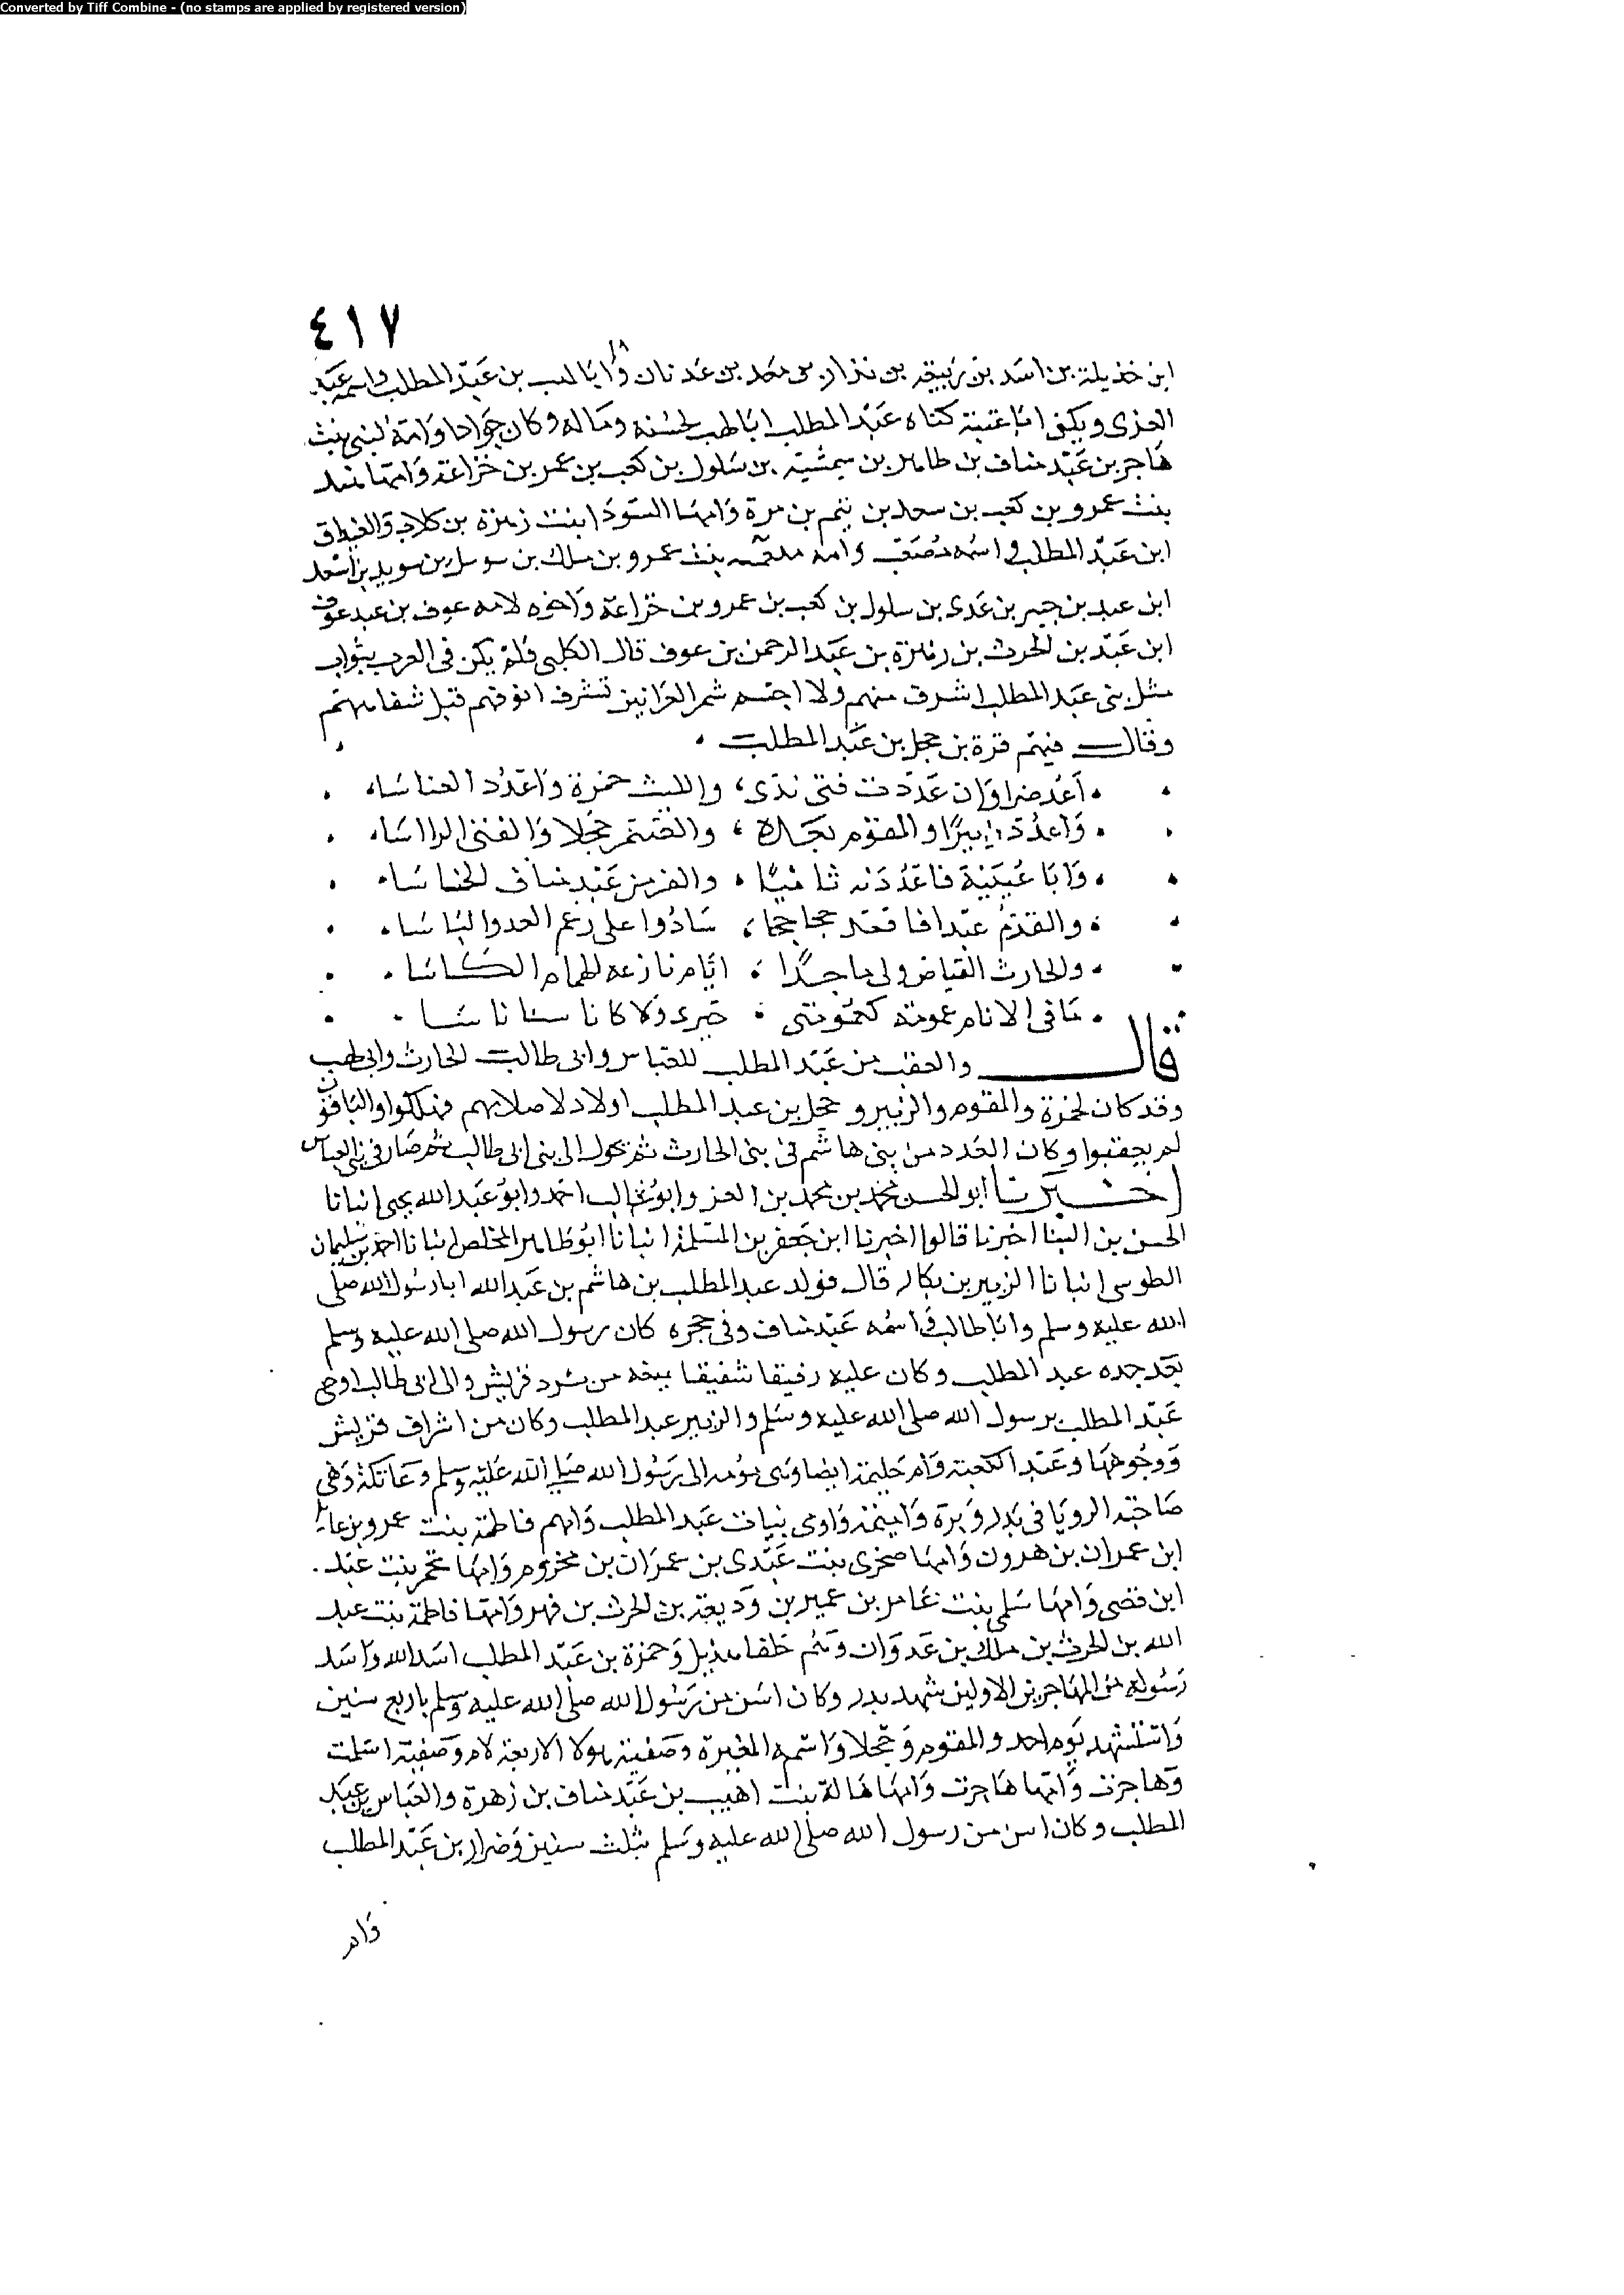 Converted by Tiff Combine - (no stamps are applied by registered version)
٤١٧
ابن خذيلة بن اسد بن ربيعة بن نزار بن معد بن عدنان وابا لهب بن عبد المطلب واسمه عبد
العزى ويكنى ابا عتبة كناه عبد المطلب ابا لهب لحسنه وماله وكان جوادا وامه لبنى بنت
هاجر بن عبد مناف بن ظاهر بن بن سلول بن كعب بن عمر بن خزاعة وامها هند
بنت عمرو بن كعب بن سعد بن تيم بن مرة وامها السودا ابنت زهرة بن كلاب والغيداق
ابن عبد المطلب واسمه مصعب وامه بنت عمرو بن ملك بن بن سويد بن اسعد
ابن عبد بن بن عدى بن سلول بن كعب بن عمرو بن خزاعة واخوه لامه عوف بن عبد عوف
ابن عبد بن الحرث بن زهرة بن عبد الرحمن بن عوف قال الكلبى فلم يكن فى العرب بنواب
مثل بنى عبد المطلب اشرف منهم ولا اجسم شم العرانين تشرف انوفهم قبل شفاههم
وقال فيهم قرة بن حجل بن عبد المطلب
اعدد ضرارا وان عددت فتى ندى والليث حمزة واعدد العباسا
واعدد زبيرا والمقوم بعده والصتم حجلا والفتى الراسا
وابا عيينة فاعددنه ثامنيا والقرم عبد مناف الخناسا
والقدم عبدا فا قعد حجاجحا سادوا على رغم العدو الناسا
والحارث الفياض ولى ماجدا ايام نازعه الهمام الكاسا
ما فى الانام عمومة كعمومتى خيرا ولا كاناسنا ناسا
قال والعقب من عبد المطلب للعباس وابى طالب الحارث وابى لهب
وقد كان لحمزة والمقوم والزبير وحجل بن عبد المطلب اولاد لاصلابهم فهلكوا والباقون
لم يعقبوا وكان العدد من بنى هاشم فى بنى الحارث ثم تحول الى بنى ابى طالب ثم صار فى بنى العباس
اخبرنا ابو الحسن محمد بن محمد بن العز وابو غالب احمد وابو عبد الله يحيى انبانا
الحسن بن البنا اخبرنا قالوا اخبرنا ابن جعفر بن المسلمة انبانا ابو طاهر المخلص انبانا احمد بن سليمان
الطوسى انبانا الزبير بن بكار قال فولد عبد المطلب بن هاشم بن عبد الله ابا رسول الله صلى
الله عليه وسلم وابا طالب واسمه عبد مناف وفى حجره كان رسول الله صلى الله عليه وسلم
بعد جده عبد المطلب وكان عليه رفيقا شفيقا من قريش والى ابى طالب اوصى
عبد المطلب برسول الله صلى الله عليه وسلم والزبير عبد المطلب وكان من اشراف قريش
ووجوهها وعبد الكعبة وام حكيمة ايضا الى رسول الله صلى الله عليه وسلم وعاتكة وهى
صاحبة الرويا فى بدر وبرة واميمة واروى بنات عبد المطلب وامهم فاطمة بنت عمرو بن عايذ
ابن عمران بن هرون وامها صخرى بنت عبدى بن عمران بن مخزوم وامها تخمر بنت عبد
ابن قصى وامها سلمى بنت عامر بن عمير بن وديعة بن الحرث بن فهر وامها فاطمة بنت عبد
الله بن الحرث بن ملك بن عدوان وهم حلفا هذيل وحمزة بن عبد المطلب اسد الله واسد
رسوله من المهاجرين الاولين شهد بدر وكان اسن من رسول الله صلى الله عليه وسلم باربع سنين
واستشهد يوم احد والمقوم وحجلا واسمه المغيرة وصفية هولا الاربعة لام وصفية اسلمت
وهاجرت وامها هاجرت وامها هالة بنت اهيب بن عبد مناف بن زهرة والعباس بن عبد
المطلب وكان اسن من رسول الله صلى الله عليه وسلم بثلث سنين وضرار بن عبد المطلب
وام